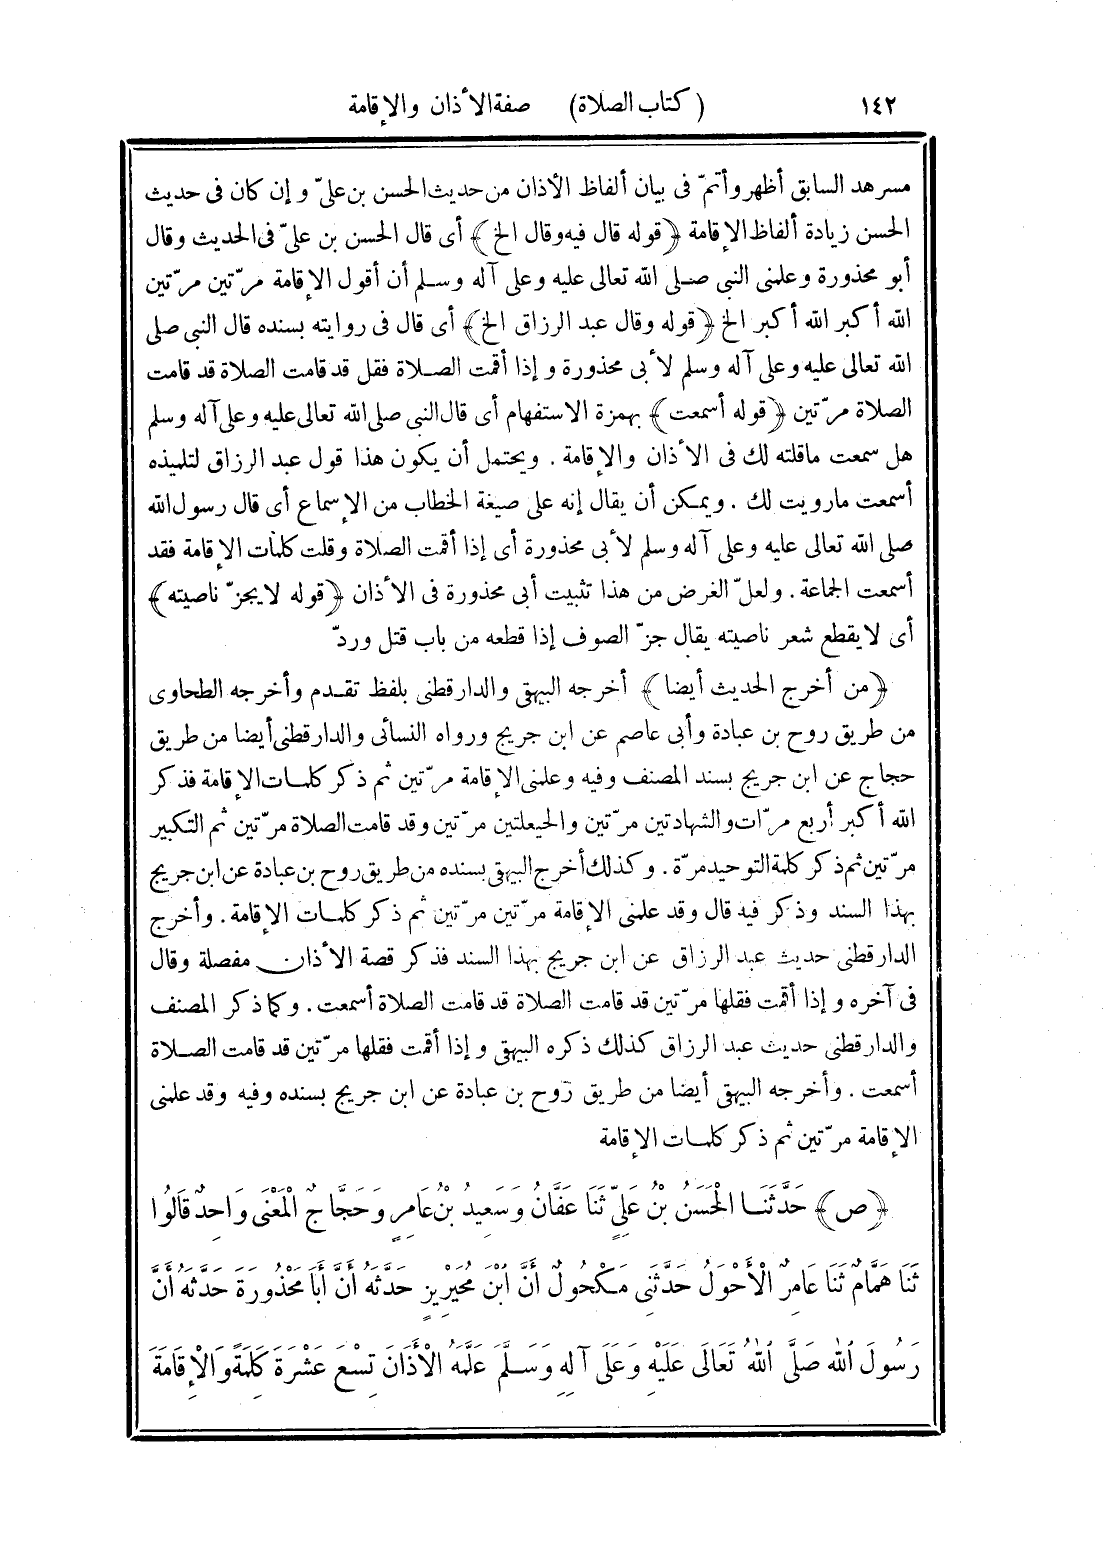 ١٤٢ (كتاب الصلاة) صفة الأذان والإقامة
مسرهد السابق أظهر وأتمّ فى بيان ألفاظ الأذان من حديث الحسن بن علىّ و إن كان فى حديث
الحسن زيادة ألفاظ الإقامة ﴿قوله قال فيه وقال الخ﴾ أى قال الحسن بن علىّ فى الحديث وقال
أبو محذورة وعلمنى النبى صلى الله تعالى عليه وعلى آله وسلم أن أقول الإقامة مرّتين مرّتين
الله أكبر الله أكبر الخ ﴿قوله وقال عبد الرزاق الخ﴾ أى قال فى روايته بسنده قال النبى صلى
الله تعالى عليه وعلى آله وسلم لأبى محذورة و إذا أقمت الصلاة فقل قد قامت الصلاة قد قامت
الصلاة مرّتين ﴿قوله أسمعت﴾ بهمزة الاستفهام أى قال النبى صلى الله تعالى عليه وعلى آله وسلم
هل سمعت ماقلته لك فى الأذان والإقامة . ويحتمل أن يكون هذا قول عبد الرزاق لتلميذه
أسمعت مارويت لك . ويمكن أن يقال إنه على صيغة الخطاب من الإسماع أى قال رسول الله
صلى الله تعالى عليه وعلى آله وسلم لأبى محذورة أى إذا أقمت الصلاة وقلت كلمات الإقامة فقد
أسمعت الجماعة . ولعلّ الغرض من هذا تثبيت أبى محذورة فى الأذان ﴿قوله لايجزّ ناصيته﴾
أى لايقطع شعر ناصيته يقال جزّ الصوف إذا قطعه من باب قتل وردّ
﴿من أخرج الحديث أيضا﴾ أخرجه البيهقى والدارقطنى بلفظ تقدم وأخرجه الطحاوى
من طريق روح بن عبادة وأبى عاصم عن ابن جريج ورواه النسائى والدارقطنى أيضا من طريق
حجاج عن ابن جريج بسند المصنف وفيه وعلمنى الإقامة مرّتين ثم ذكر كلمات الإقامة فذكر
الله أكبر أربع مرّات والشهادتين مرّتين والحيعلتين مرّتين وقد قامت الصلاة مرّتين ثم التكبير
مرّتين ثم ذكر كلمة التوحيد مرّة . وكذلك أخرج البيهقى بسنده من طريق روح بن عبادة عن ابن جريج
بهذا السند وذكر فيه قال وقد علمنى الإقامة مرّتين مرّتين ثم ذكر كلمات الإقامة . وأخرج
الدارقطنى حديث عبد الرزاق عن ابن جريج بهذا السند فذكر قصة الأذان مفصلة وقال
فى آخره و إذا أقمت فقلها مرّتين قد قامت الصلاة قد قامت الصلاة أسمعت . وكما ذكر المصنف
والدارقطنى حديث عبد الرزاق كذلك ذكره البيهقى و إذا أقمت فقلها مرّتين قد قامت الصلاة
أسمعت . وأخرجه البيهقى أيضا من طريق رَوح بن عبادة عن ابن جريج بسنده وفيه وقد علمنى
الإقامة مرّتين ثم ذكر كلمات الإقامة
﴿ص﴾ حَدَّثَنَا الْحَسَنُ بْنُ عَلِىٍّ ثَنَا عَفَّانُ وَسَعِيدُ بْنُ عَامِرٍ وَحَجَّاجٌ الْمَعْنَى وَاحِدٌ قَالُوا
ثَنَا هَمَّامٌ ثَنَا عَامِرٌ الْأَحْوَلُ حَدَّثَنِى مَكْحُولٌ أَنَّ ابْنَ مُحَيْرِيزٍ حَدَّثَهُ أَنَّ أَبَا مَحْذُورَةَ حَدَّثَهُ أَنَّ
رَسُولَ اللهِ صَلَّى اللهُ تَعَالَى عَلَيْهِ وَعَلَى آلِهِ وَسَلَّمَ عَلَّمَهُ الْأَذَانَ تِسْعَ عَشْرَةَ كَلِمَةً وَالْإِقَامَةَ